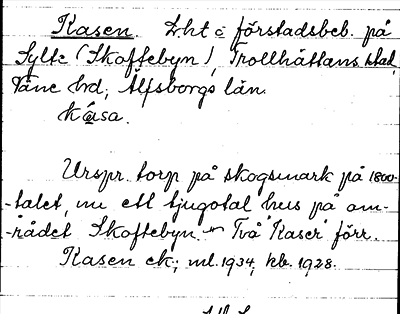 Kasen. Lht o förstadsbeb. på
Sylte (Skoftebyn), Trollhättans stad,
Väne hd, Älfsborgs län.
kása.
Urspr. torp på skogsmark på 1800-
-talet, nu ett tjugotal hus på om-
-rådet Skoftebyn. Två "Kaser" förr.
Kasen ek; ml. 1934, kb. 1928.